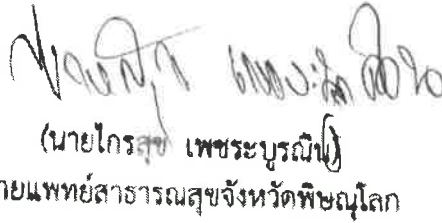 (นายไกรสุข เพชระบูรณิน)
ายแพทย์สาธารณสุขจังหวัดพิษณุโลก